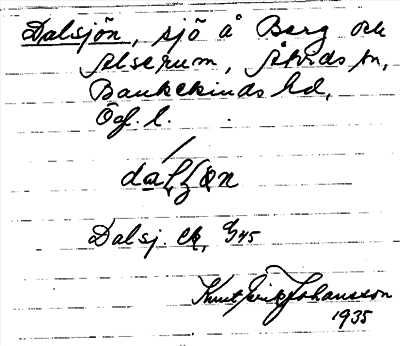 Dalsjön, sjö å Berg och
Alserum, Åtvids sn,
Bankekinds hd,
Ög. l.
Dalsj. Ek,
Knut Erik Johansson
1935